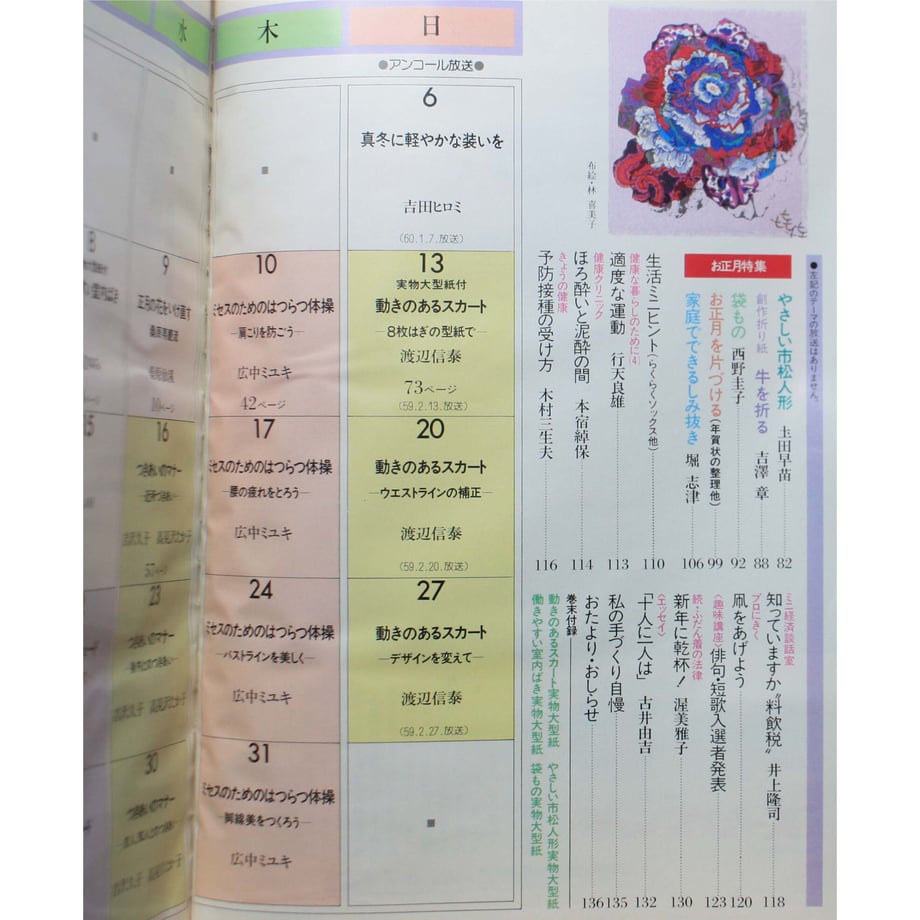 水
木
日
●アンコール放送●
6
真冬に軽やかな装いを
吉田ヒロミ
(60.1.7.放送)
8
9
正月の花をいけ直す
10
ミセスのためのはつらつ体操
―肩こりを防ごう―
広中ミユキ
42ページ
13
実物大型紙付
動きのあるスカート
―8枚はぎの型紙で―
渡辺信泰
73ページ
(59.2.13.放送)
15
16
つきあいのマナー
17
ミセスのためのはつらつ体操
―腰の疲れをとろう―
広中ミユキ
20
動きのあるスカート
―ウエストラインの補正―
渡辺信泰
(59.2.20.放送)
23
つきあいのマナー
24
ミセスのためのはつらつ体操
―バストラインを美しく―
広中ミユキ
27
動きのあるスカート
―デザインを変えて―
渡辺信泰
(59.2.27.放送)
30
つきあいのマナー
31
ミセスのためのはつらつ体操
―脚線美をつくろう―
広中ミユキ
布絵・林 喜美子
●左記のテーマの放送はありません。
お正月特集
やさしい市松人形 土田早苗 82
創作折り紙 牛を折る 吉澤 章 88
袋もの 西野圭子 92
お正月を片づける(年賀状の整理他) 99
家庭でできるしみ抜き 堀 志津 106
生活ミニヒント(らくらくソックス他) 110
健康な暮らしのために(4)
適度な運動 行天良雄 113
健康クリニック
ほろ酔いと泥酔の間 本宿綽保 114
きょうの健康
予防接種の受け方 木村三生夫 116
ミニ経済談話室
知っていますか“料飲税” 井上隆司 118
プロにきく
凧をあげよう 120
〈趣味講座〉俳句・短歌入選者発表 123
続・ふだん着の法律
新年に乾杯! 渥美雅子 130
〈エッセイ〉
「十人に一人は」 古井由吉 132
私の手づくり自慢 135
おたより・おしらせ 136
巻末付録
動きのあるスカート実物大型紙 やさしい市松人形実物大型紙
働きやすい室内ばき実物大型紙 袋もの実物大型紙